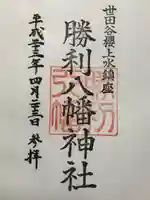 世田谷櫻上水鎮盛
勝利八幡神社
平成二十三年四月二十三日参拝